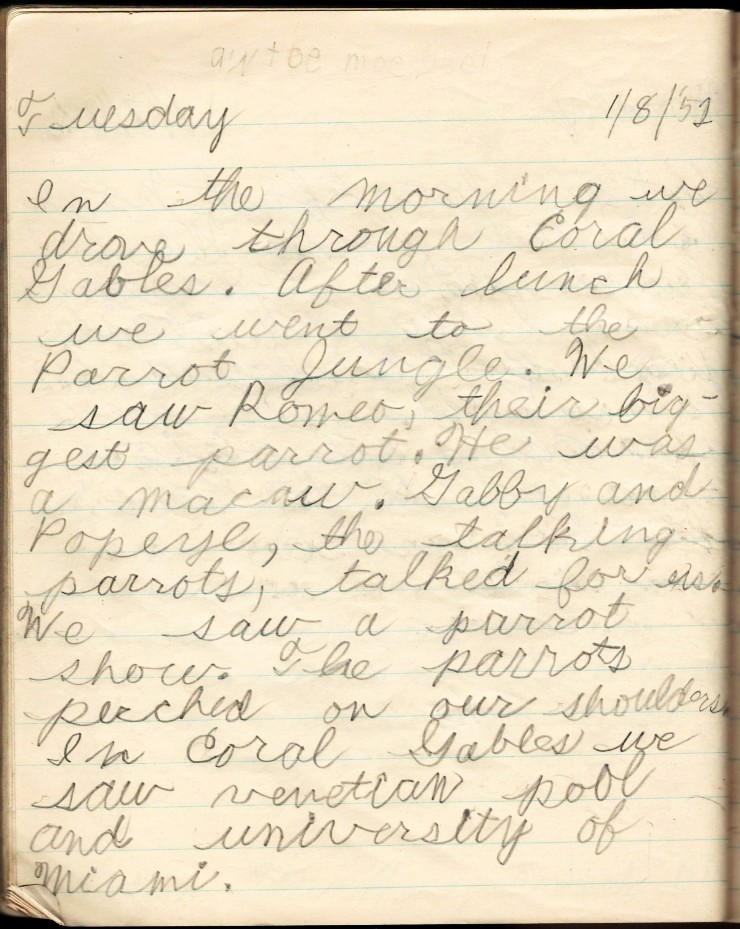 Tuesday 1/8/52
In the morning we
drove through Coral
Gables. After lunch
we went to the
Parrot Jungle. We
saw Romeo, their big-
gest parrot. He was
a macaw. Gabby and
Popeye, the talking
parrots, talked for us.
We saw a parrot
show. The parrots
perched on our shoulders.
In Coral Gables we
saw venetian pool
and university of
Miami.